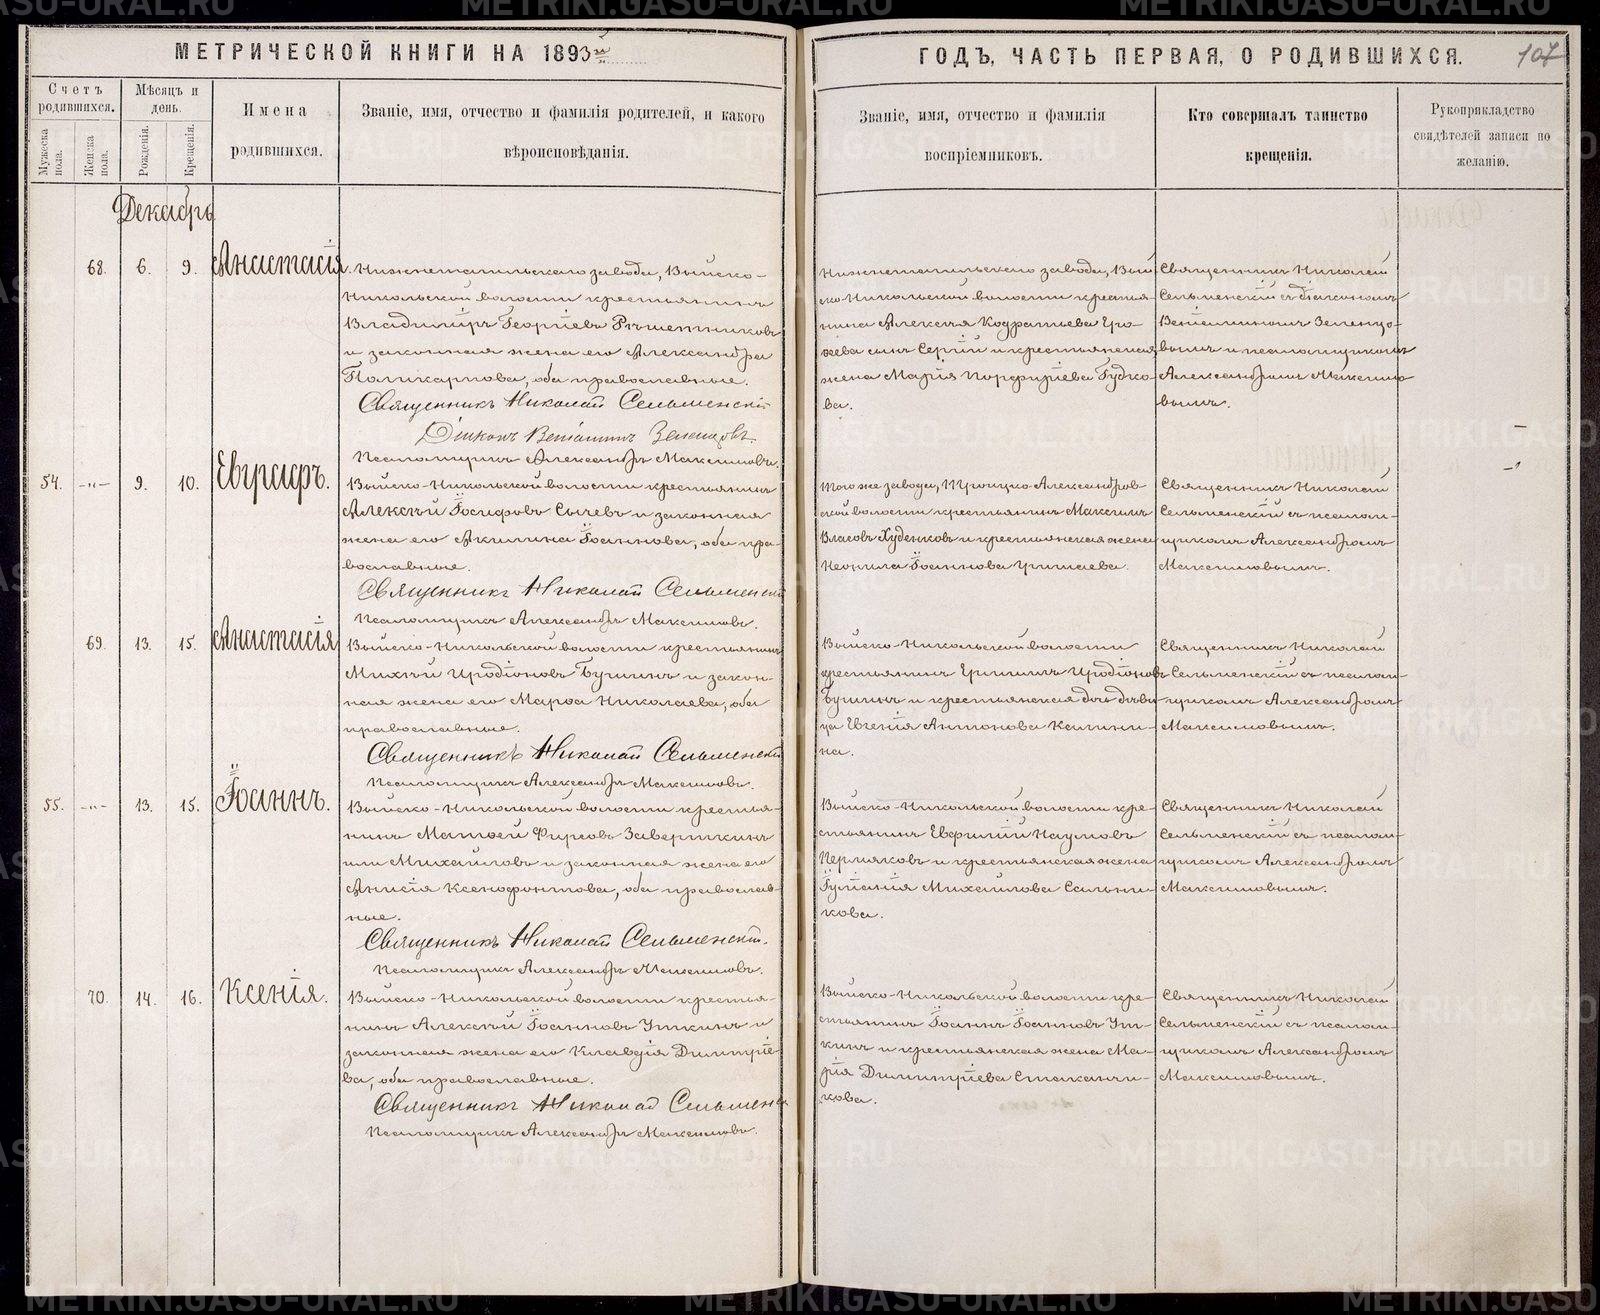 МЕТРИЧЕСКОЙ КНИГИ НА 1893й
ГОДЪ, ЧАСТЬ ПЕРВАЯ, О РОДИВШИХСЯ.
107
Счетъ родившихся.
Мужеска пола.
Женска пола.
Мѣсяцъ и день.
Рожденія.
Крещенія.
Имена
родившихся.
Званіе, имя, отчество и фамилія родителей, и какого
вѣроисповѣданія.
Званіе, имя, отчество и фамилія
воспріемниковъ.
Кто совершалъ таинство
крещенія.
Рукоприкладство
свидѣтелей записи по
желанію.
Декабрь
68. 6. 9. Анастасія.
Нижнетагильскаго завода, Выйско-
Никольской волости крестьянинъ
Владиміръ Георгіевъ Рѣшетниковъ
и законная жена его Александра
Поликарпова, оба православные.
Священникъ Николай Сельменскій
Діаконъ Веніаминъ Зеленцовъ.
Псаломщикъ Александръ Максимовъ.
Нижнетагильскаго завода, Вый
ско-Никольской волости крестья-
нина Алексѣя Кодратьева
сынъ Сергій и крестьянская
жена Марія Порфиріева Гудко-
ва.
Священникъ Николай
Сельменскій съ діакономъ
Веніаминомъ Зеленцо-
вымъ и псаломщикомъ
Александромъ Максимо
вымъ.
54. -"- 9. 10. Евграфъ.
Выйско-Никольской волости крестьянинъ
Алексѣй Іосифовъ Сычевъ и законная
жена его Акилина Іоаннова, оба пра-
вославные.
Священникъ Николай Сельменскій
Псаломщикъ Александръ Максимовъ.
Того же завода, Троицко-Александров
ской волости крестьянинъ Максимъ
Власовъ Худенковъ и крестьянская жена
Неонила Іоаннова
Священникъ Николай
Сельменскій съ псалом-
щикомъ Александромъ
Максимовымъ.
69. 13. 15. Анастасія
Выйско-Никольской волости крестьянинъ
Михѣй Иродіоновъ Бушинъ и закон-
ная жена его Марѳа Николаева, оба
православные.
Священникъ Николай Сельменскій
Псаломщикъ Александръ Максимовъ.
Выйско-Никольской волости
крестьянинъ Иродіоновъ
Бушинъ и крестьянская дочь дѣви
ца Евгенія Антонова Калини-
на.
Священникъ Николай
Сельменскій съ псалом-
щикомъ Александромъ
Максимовымъ.
55. -"- 13. 15. Іоаннъ.
Выйско-Никольской волости крестья-
нинъ Матѳей Фирсовъ Заверткинъ
или Михайловъ и законная жена его
Анисія Ксенофонтова, оба православ-
ные.
Священникъ Николай Сельменскій.
Псаломщикъ Александръ Максимовъ.
Выйско-Никольской волости кре-
стьянинъ Наумовъ
Пермяковъ и крестьянская жена
Іуліанія Михайлова Сальни-
кова.
Священникъ Николай
Сельменскій съ псалом-
щикомъ Александромъ
Максимовымъ.
70. 14. 16. Ксенія.
Выйско-Никольской волости крестья-
нинъ Алексѣй Іоанновъ Уткинъ и
законная жена его Клавдія Димитріе
ва, оба православные.
Священникъ Николай Сельменск
Псаломщикъ Александръ Максимовъ.
Выйско-Никольской волости кре-
стьянинъ Іоаннъ Іоанновъ Ут-
кинъ и крестьянская жена Ма-
рія Димитріева Стаканчи-
кова.
Священникъ Николай
Сельменскій съ псалом-
щикомъ Александромъ
Максимовымъ.
METRIKI.GASO-URAL.RU